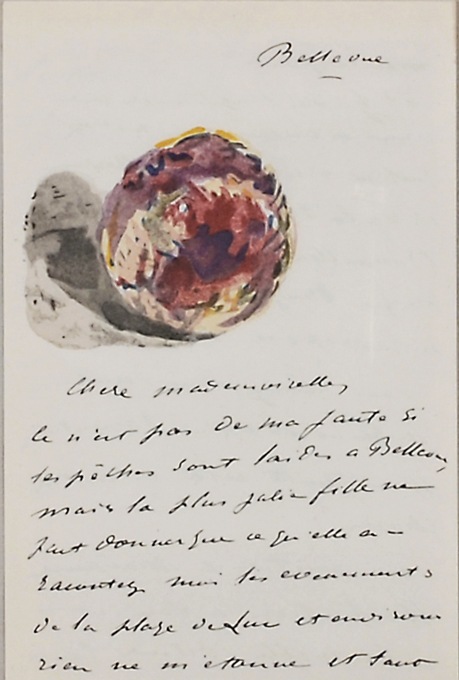 Bellevue
Chere mademoiselle,
ce n'est pas de ma faute si
les pêches sont laides a Bellevue,
mais la plus jolie fille ne
peut donner que ce qu'elle a –
racontez moi les evenements
de la plage de Luc et environs
rien ne m'etonne et tout